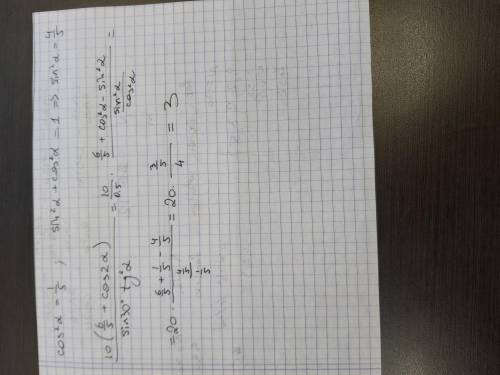 cos²α = 1/5 ; sin²α + cos²α = 1 => sin²α = 4/5
10(6/5 + cos2α) / (sin30° tg²α) = 10/0.5 · (6/5 + cos²α - sin²α) / (sin²α/cos²α) =
= 20 · (6/5 + 1/5 - 4/5) / ((4/5)/(1/5)) = 20 · (3/5)/4 = 3